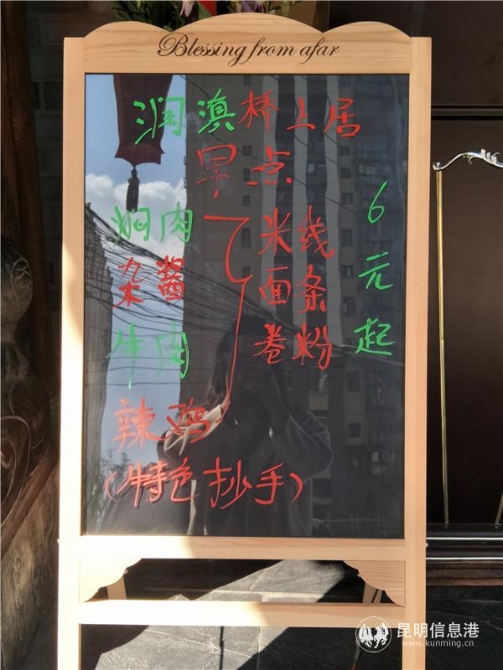 Blessing from afar
润滇桥上居
早点
焖肉 米线 6元起
杂酱 面条
牛肉 卷粉
辣鸡
(特色抄手)
昆明信息港
www.kunming.cn